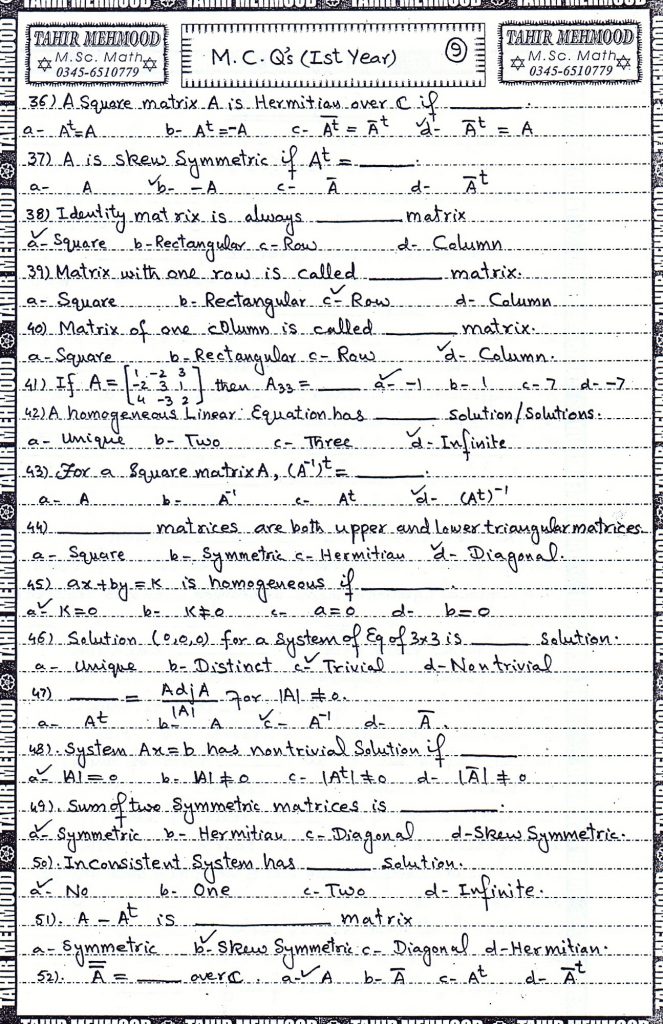 TAHIR MEHMOOD
M.Sc. Math
0345-6510779
M.C.Q's (Ist Year) 9
TAHIR MEHMOOD
M.Sc. Math
0345-6510779
36) A Square matrix A is Hermitian over C if ______.
a- Aᵗ=A b- Aᵗ=-A c- A̅ᵗ = A̅ᵗ ✓d- A̅ᵗ = A
37) A is skew Symmetric if Aᵗ = ______.
a- A ✓b- -A c- A̅ d- A̅ᵗ
38) Identity matrix is always ______ matrix
✓a- Square b- Rectangular c- Row d- Column
39) Matrix with one row is called ______ matrix.
a- Square b- Rectangular ✓c- Row d- Column
40) Matrix of one column is called ______ matrix.
a- Square b- Rectangular c- Row ✓d- Column.
41) If A = [1 -2 3
-2 3 1
4 -3 2] then A₃₃ = ____ ✓a- -1 b- 1 c- 7 d- -7
42) A homogeneous Linear Equation has ______ solution/Solutions.
a- Unique b- Two c- Three ✓d- Infinite
43) For a Square matrix A, (A⁻¹)ᵗ = ______.
a- A b- A⁻¹ c- Aᵗ ✓d- (Aᵗ)⁻¹
44) ______ matrices are both upper and lower triangular matrices.
a- Square b- Symmetric c- Hermitian ✓d- Diagonal.
45) ax+by=K is homogeneous if ______.
✓a- K=0 b- K≠0 c- a=0 d- b=0
46) Solution (0,0,0) for a System of Eq of 3x3 is ______ Solution.
a- Unique b- Distinct ✓c- Trivial d- Nontrivial
47) ____ = AdjA/|A| For |A| ≠ 0.
a- Aᵗ b- A ✓c- A⁻¹ d- A̅.
48). System Ax=b has nontrivial Solution if ______
✓a- |A|=0 b- |A|≠0 c- |Aᵗ|≠0 d- |A̅|≠0
49). Sum of two Symmetric matrices is ______.
✓a- Symmetric b- Hermitian c- Diagonal d- Skew Symmetric.
50). Inconsistent System has ______ Solution.
✓a- No b- One c- Two d- Infinite.
51). A - Aᵗ is ______ matrix
a- Symmetric ✓b- Skew Symmetric c- Diagonal d- Hermitian.
52). A̿ = ____ over C. ✓a- A b- A̅ c- Aᵗ d- A̅ᵗ